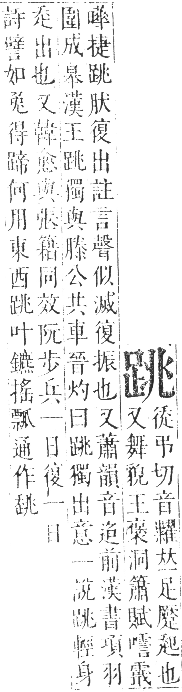 跳
徒弔切音耀𠀤足蹷起也
又舞貌王褒洞簫賦嚖霵
曄㨗跳肰復出註言聲似滅復振也又蕭韻音迢前漢書項羽
圍成皋漢王跳獨與滕公共車晉灼曰跳獨出意一說跳輕身
走出也又韓愈與張籍同效阮步兵一日復一日
詩譬如兔得蹄何用東西跳叶鑣搖飄通作